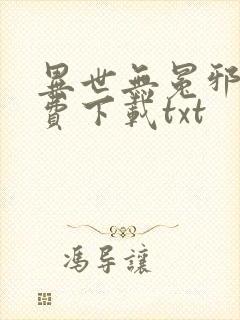 異世無冕邪
費下載txt
馮導讓